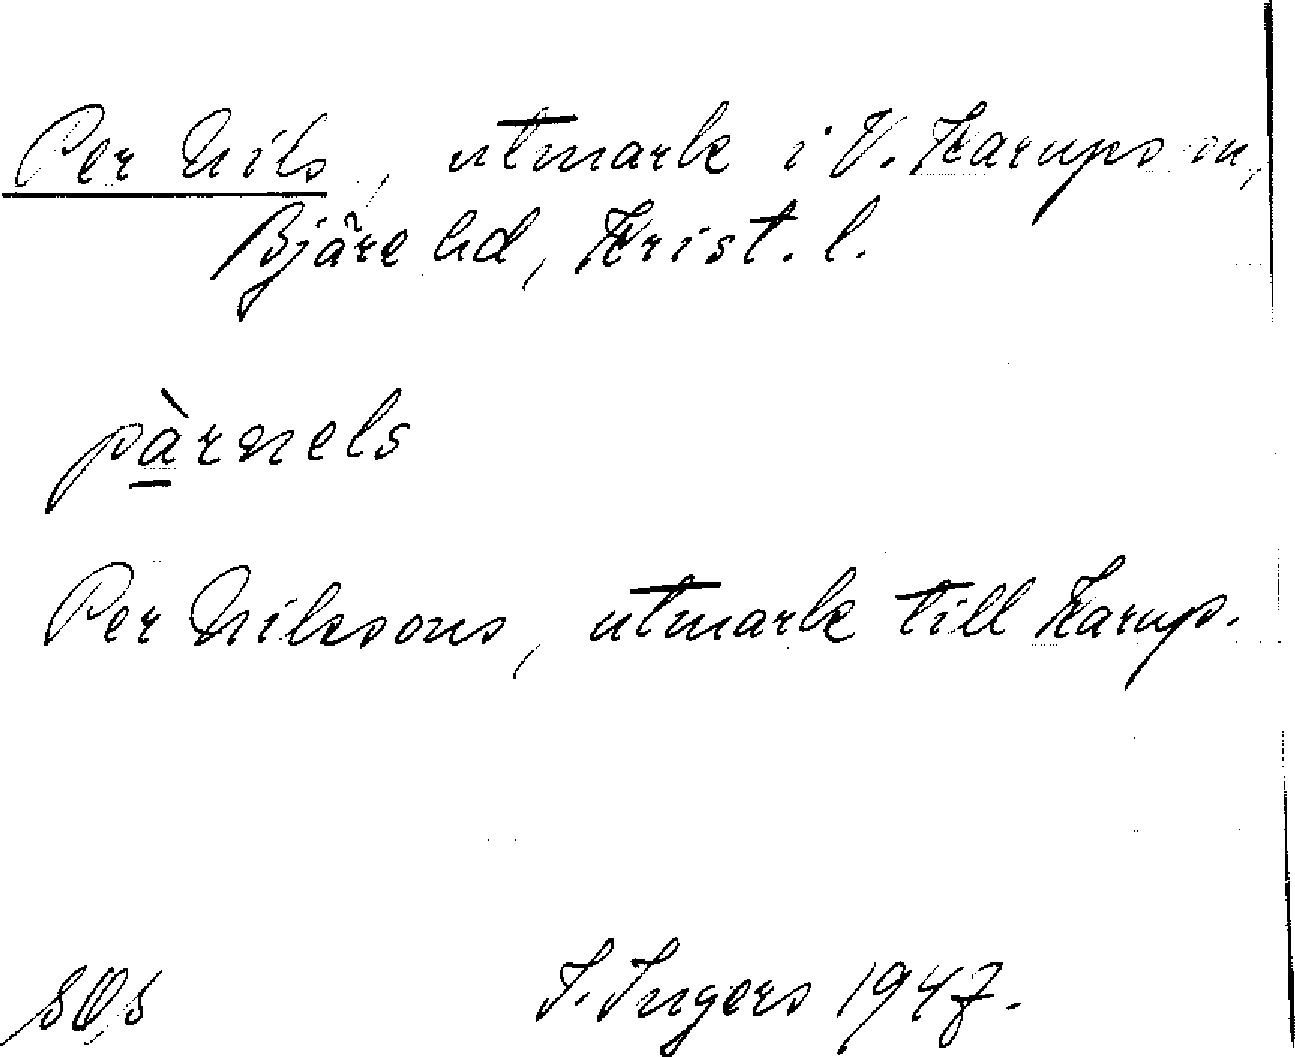 Per Nils, utmark i V. Karups sn,
Bjäre hd, Krist. l.
pàrnels
Per Nilssons, utmark till Karup.
I. Ingers 1947.